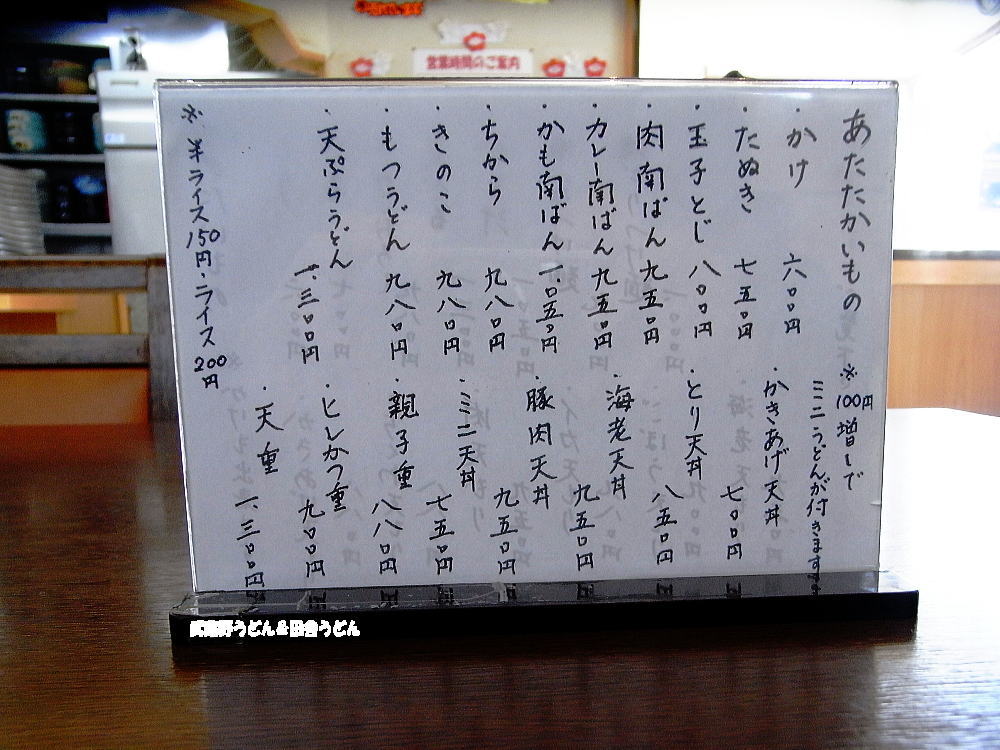 営業時間のご案内
あたたかいもの
・かけ 六〇〇円
・たぬき 七五〇円
・玉子とじ 八〇〇円
・肉南ばん 九五〇円
・カレー南ばん 九五〇円
・かも南ばん 一.〇五〇円
・ちから 九八〇円
・きのこ 九八〇円
・もつうどん 九八〇円
・天ぷらうどん 一.三〇〇円
※半ライス150円・ライス200円
※100円増しで
ミニうどんが付きます
・かきあげ天丼 七〇〇円
・とり天丼 八五〇円
・海老天丼 九五〇円
・豚肉天丼 九五〇円
・ミニ天丼 七五〇円
・親子重 八八〇円
・ヒレかつ重 九〇〇円
・天重 一.三〇〇円
武蔵野うどん&田舎うどん